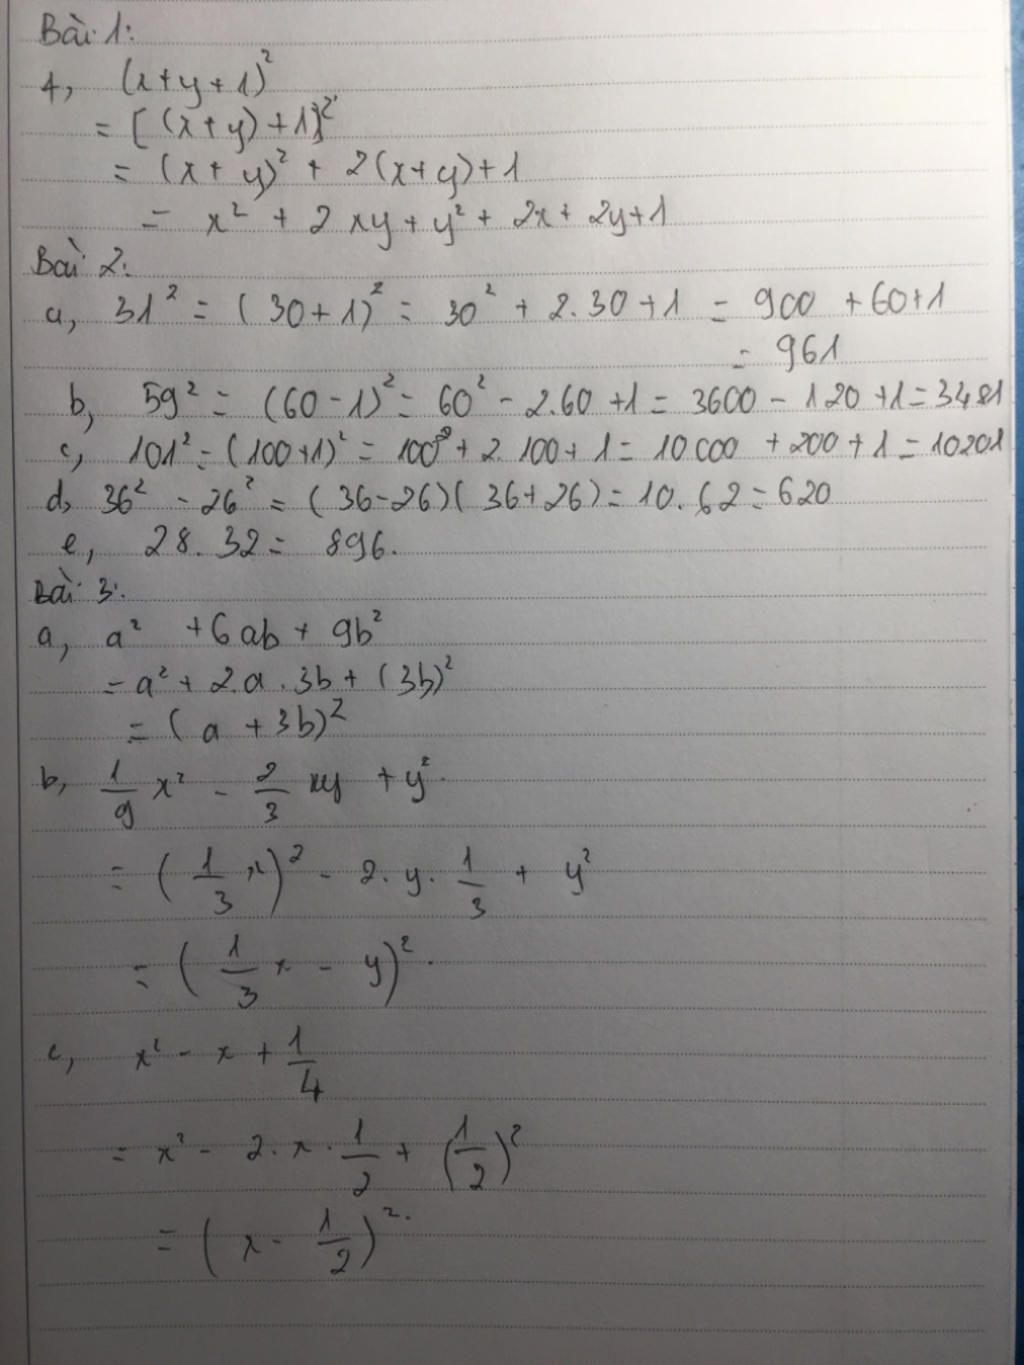 Bài 1:
f, (x+y+1)²
= [(x+y)+1]²
= (x+y)² + 2(x+y)+1
= x² + 2xy + y² + 2x + 2y+1
Bài 2:
a, 31² = (30+1)² = 30² + 2.30+1 = 900 +60+1
= 961
b, 59² = (60-1)² = 60² - 2.60 +1 = 3600 - 120 +1 = 3481
c, 101² = (100+1)² = 100² + 2.100+1 = 10000 +200+1 = 10201
d, 36² - 26² = (36-26)(36+26) = 10.62 = 620
e, 28.32 = 896.
Bài 3:
a, a² +6ab + 9b²
= a² + 2.a.3b + (3b)²
= (a +3b)²
b, 1/9 x² - 2/3 xy + y².
= (1/3 x)² - 2.y.1/3 + y²
= (1/3 x - y)².
c, x² - x + 1/4
= x² - 2.x.1/2 + (1/2)²
= (x - 1/2)².